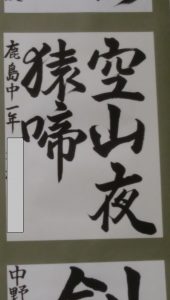 空山夜
猿啼
鹿島中一年
中野